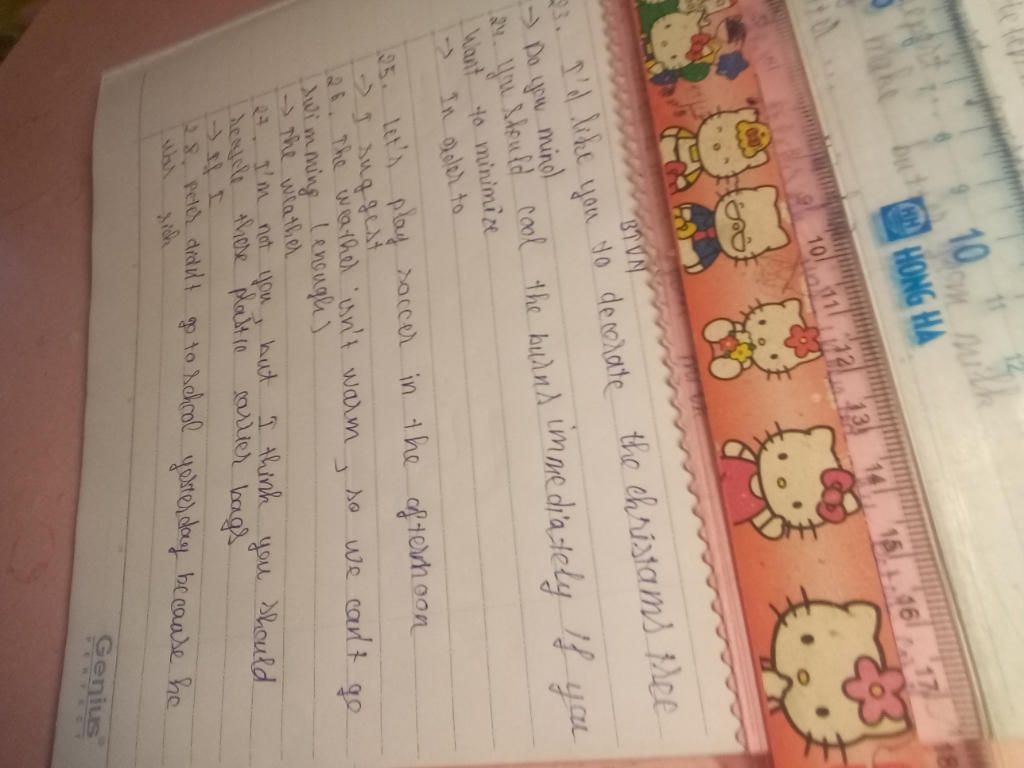 BTVN
23. I'd like you to decorate the christams tree
→ Do you mind
24. you should cool the burns immediately if you
Want to minimize
→ In order to
25. Let's play soccer in the afternoon
→ I suggest
26. The weather isn't warm, so we can't go
swimming (enough)
→ The weather
27. I'm not you, but I think you should
recycle these plastic carrier bags
→ If I
28. peter didn't go to school yesterday because he
was sick
Genius
PERFECT
HONG HA
make but
from milk
9 10 11 12
9 10 11 12 13 14 15 16 17 18